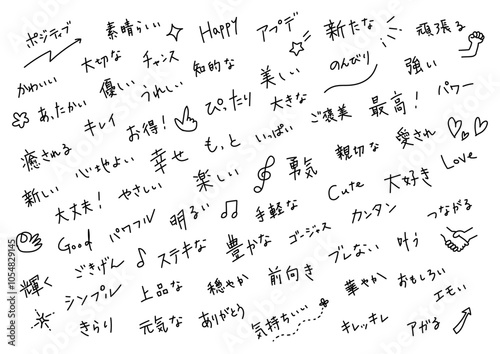 ポジティブ 素晴らしい Happy アプデ 新たな 頑張る
かわいい 大切な チャンス 知的な 美しい のんびり 強い
あったかい 優しい うれしい ぴったり 大きな ご褒美 最高！ パワー
癒される キレイ お得！ もっと いっぱい 親切な 愛され
新しい 心地よい 幸せ 楽しい 勇気 Cute 大好き Love
大丈夫！ やさしい 明るい 手軽な カンタン つながる
Good パワフル ステキな 豊かな ゴージャス ブレない 叶う
輝く ごきげん 上品な 穏やか 前向き 華やか おもしろい
シンプル 元気な ありがとう 気持ちいい キレッキレ アガる エモい
きらり
Adobe Stock
Adobe Stock | #1054829145